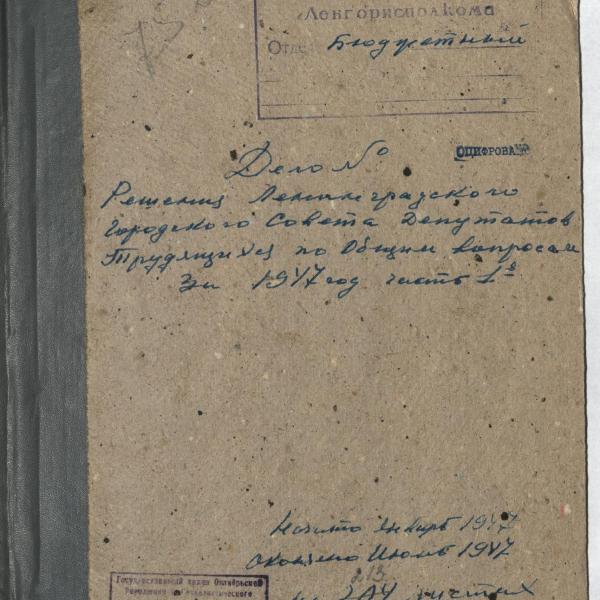 Ленгорисполкома
Отдел Бюджетный
Дело №
ОЦИФРОВАНО
Решения Ленинградского
Городского Совета Депутатов
Трудящихся по Общим вопросам
За 1947 год часть 1я
Начато Январь 1947
окончено Июнь 1947
213
На 244 листах
Государственный архив Октябрьской
Революции и Социалистического